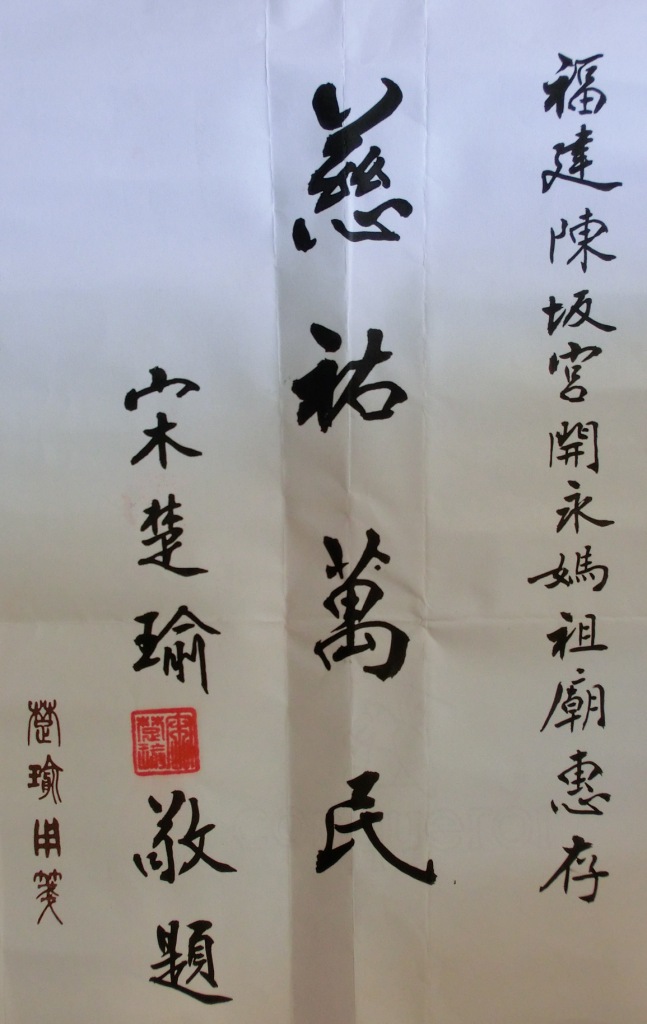 福建陳坂宮開永媽祖廟惠存
慈祐萬民
宋楚瑜敬題
楚瑜用箋